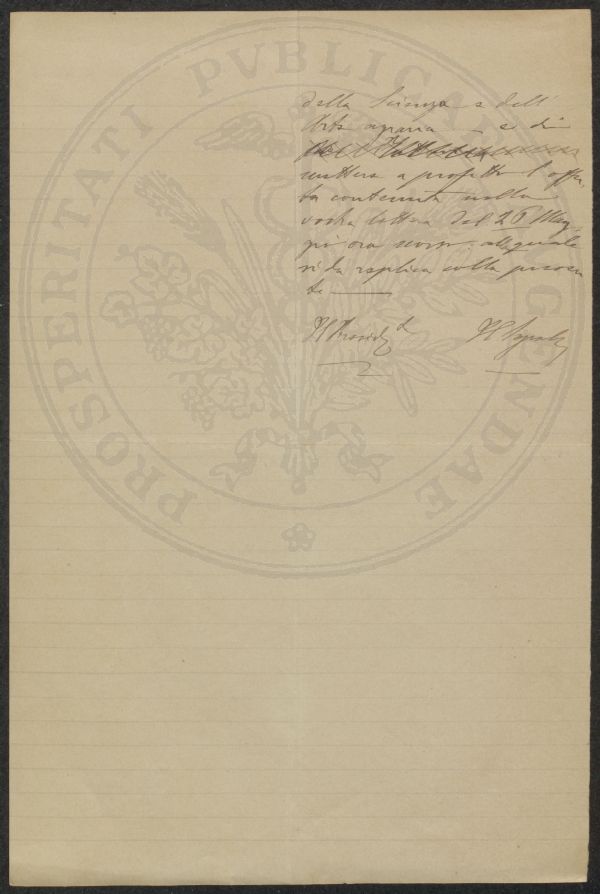 PROSPERITATI PVBLICAE AVGENDAE
della Scienza e dell'
Arte agraria — e di
mettere a profitto l'offer
ta contenuta nella
vostra lettera del 26 Mag
gio ora scorso alla quale
si da replica colla presen
te —
Il Presid.
Il Segret.